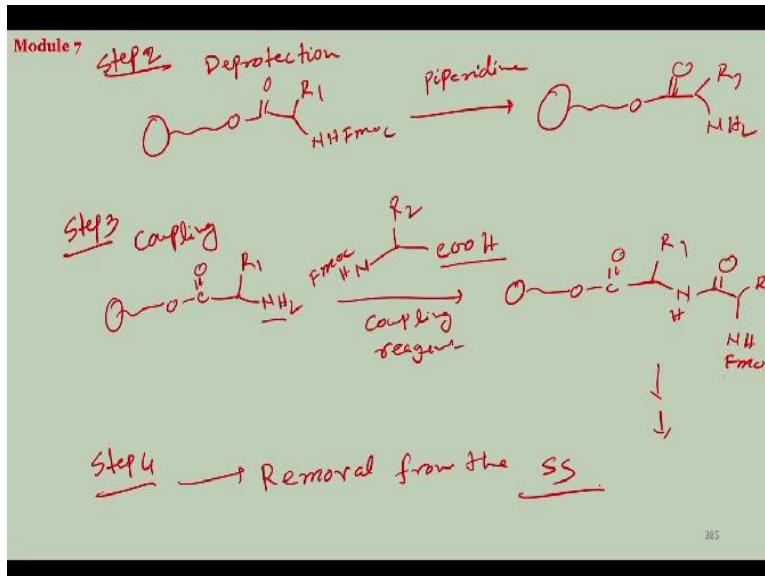 Module 7
Step 2 Deprotection
O O R1 NHFmoc
Piperidine
O O R1 NH2
Step 3 Coupling
O O C R1 NH2
R2 Fmoc HN COOH
Coupling
reagent
O O C R1 N H O R NH
Fmoc
Step 4 → Removal from the SS
385